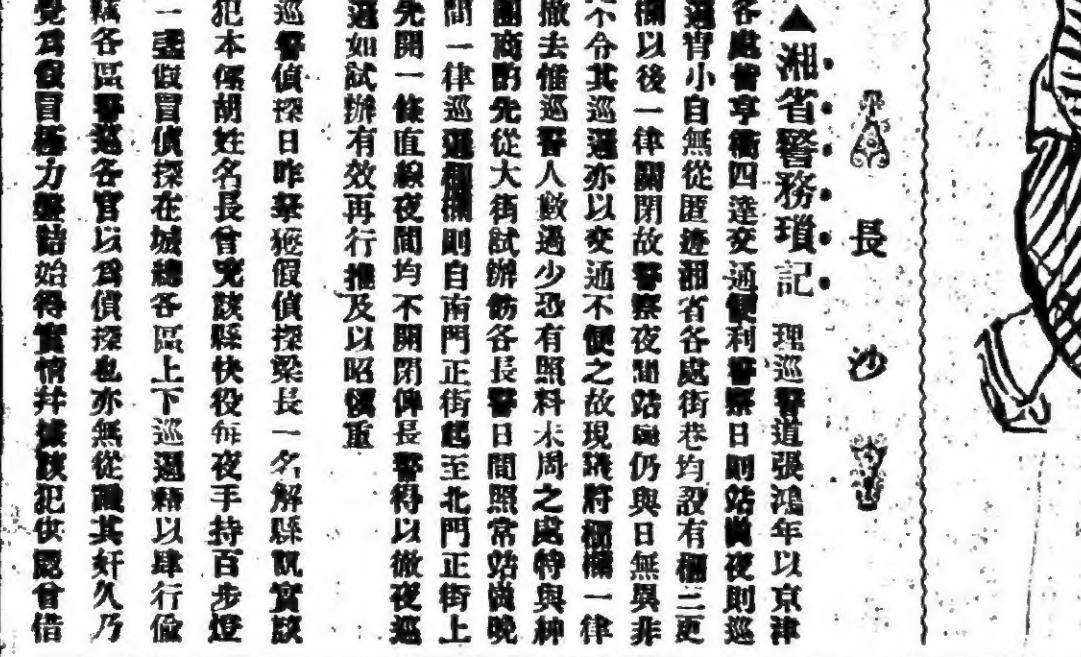 長沙
▲湘省警務瑣記 理巡警道張鴻年以京津
各處皆享衢四達交通便利警察日則站崗夜則巡
邏宵小自無從匿迹湘省各處街巷均設有柵三更
欄以後一律關閉故警察夜間站崗仍與日無異非
不令其巡邏亦以交通不便之故現擬將柵欄一律
撤去惟巡警人數過少恐有照料未周之處特與紳
團商酌先從大街試辦飭各長警日間照常站崗晚
間一律巡邏柵欄則自南門正街起至北門正街上
先開一條直線夜間均不開閉俾長警得以徹夜巡
邏如試辦有效再行推及以昭慎重
巡警偵探日昨拏獲假偵探梁長一名解縣訊實該
犯本係胡姓名長曾充該縣快役每夜手持百步燈
一盞假冒偵探在城總各區上下巡邏藉以肆行偷
竊各區警巡各官以爲偵探也亦無從疑其奸久乃
覺爲假冒極力盤詰始得實情幷據該犯供認曾借